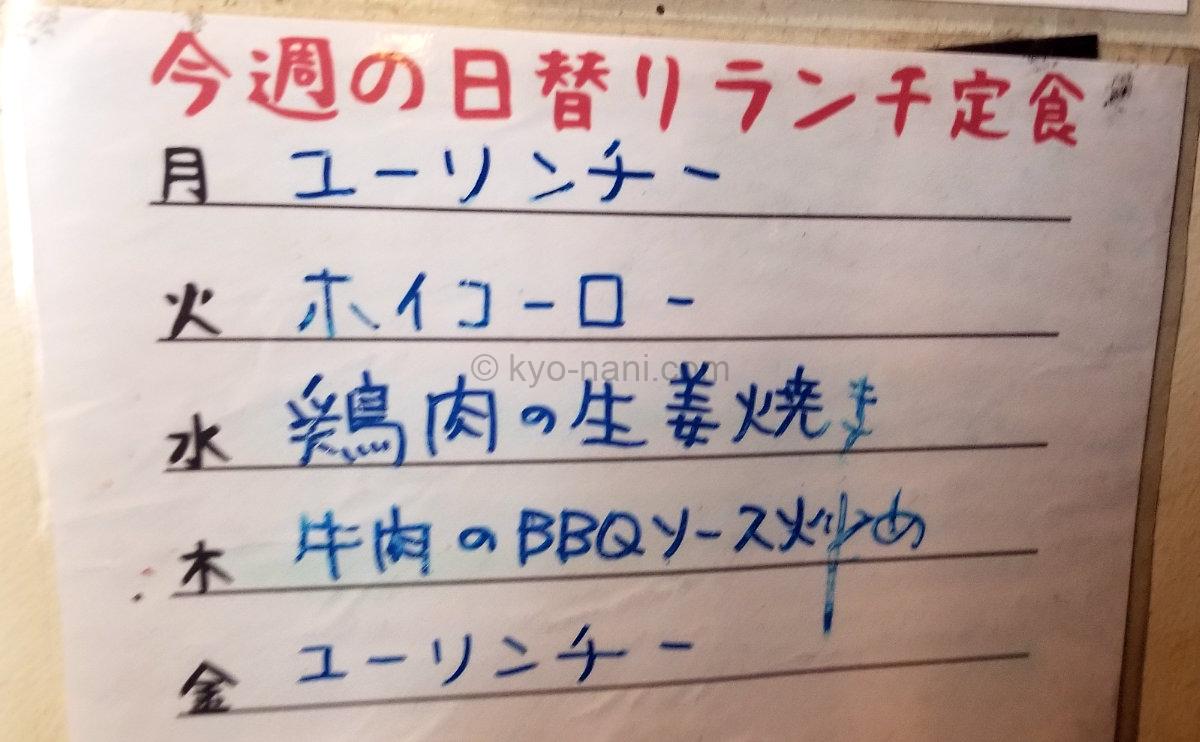 今週の日替リランチ定食
月 ユーリンチー
火 ホイコーロー
© kyo-nani.com
水 鶏肉の生姜焼き
木 牛肉のBBQソース炒め
金 ユーリンチー